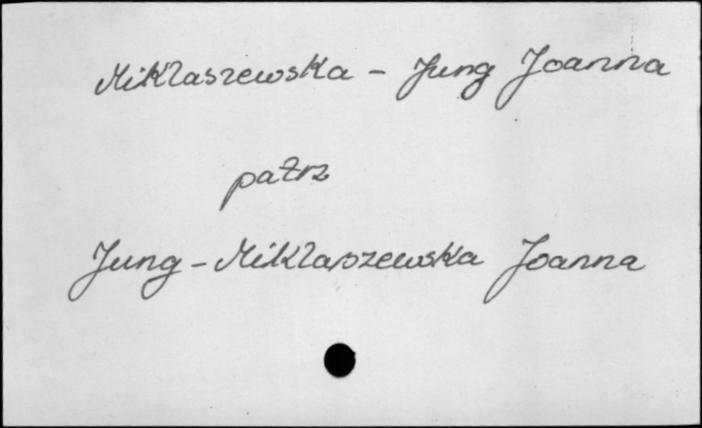 Mikłaszewska - Jung Joanna
patrz
Jung-Mikłaszewska Joanna